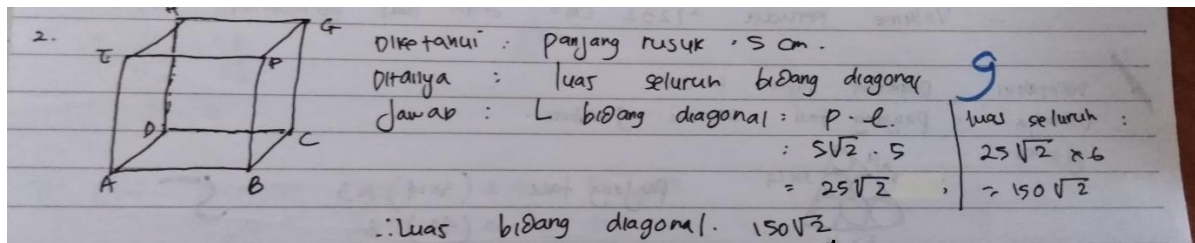 2.
H G
E F
D C
A B
Diketahui : panjang rusuk . 5 cm .
Ditanya : luas seluruh bidang diagonal
9
Jawab : L bidang diagonal : p . l .
: 5√2 . 5
= 25√2 ,
luas seluruh :
25√2 × 6
= 150 √2
∴ Luas bidang diagonal . 150√2